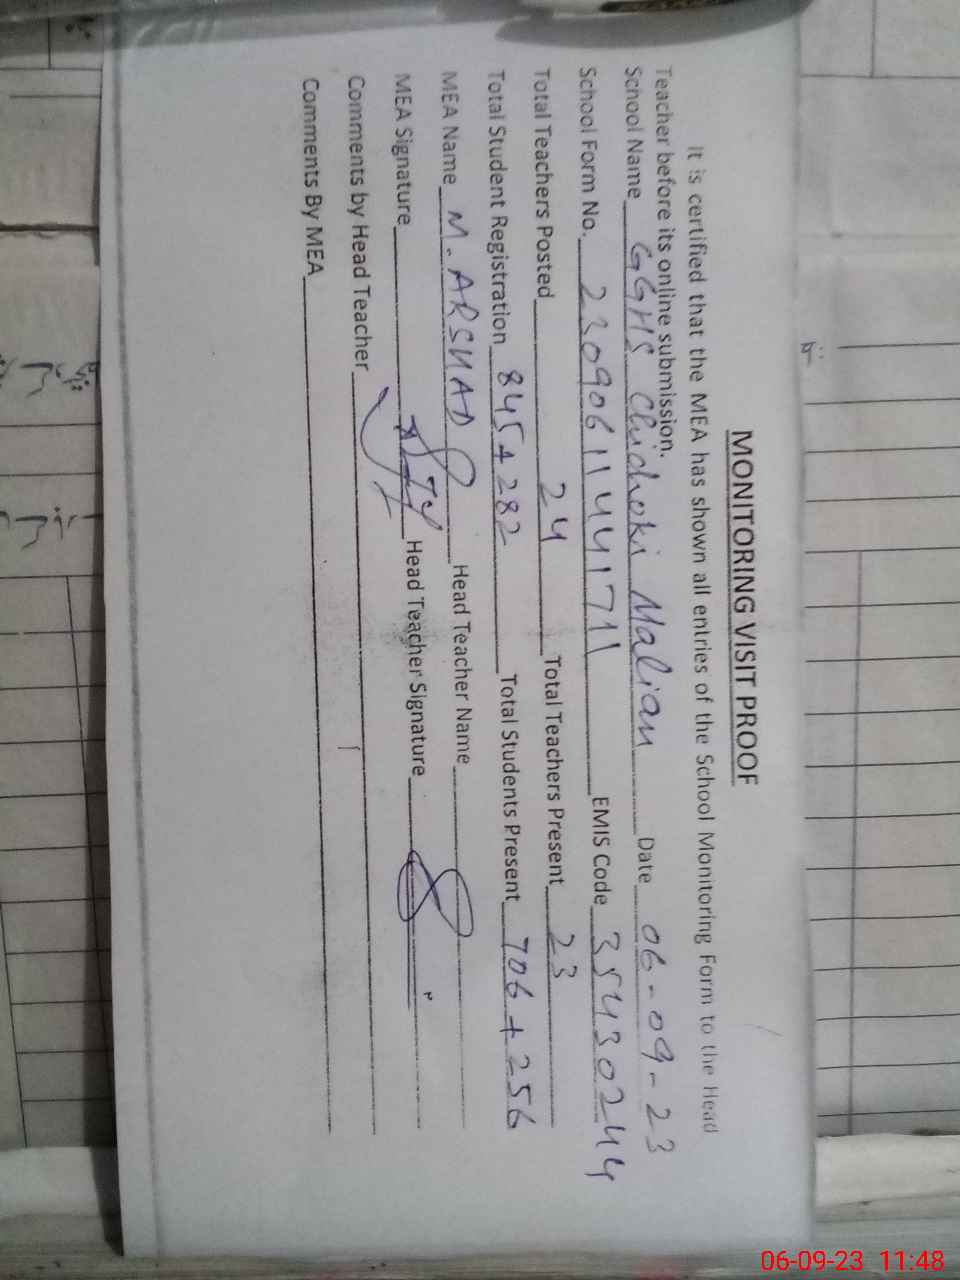 MONITORING VISIT PROOF
It is certified that the MEA has shown all entries of the School Monitoring Form to the Head
Teacher before its online submission.
School Name GGHS Chichoki Malian Date 06-09-23
School Form No. 2309061144171 EMIS Code 35430244
Total Teachers Posted 24 Total Teachers Present 23
Total Student Registration 845+282 Total Students Present 706+256
MEA Name M. ARSHAD Head Teacher Name
MEA Signature Head Teacher Signature
Comments by Head Teacher
Comments By MEA
06-09-23 11:48